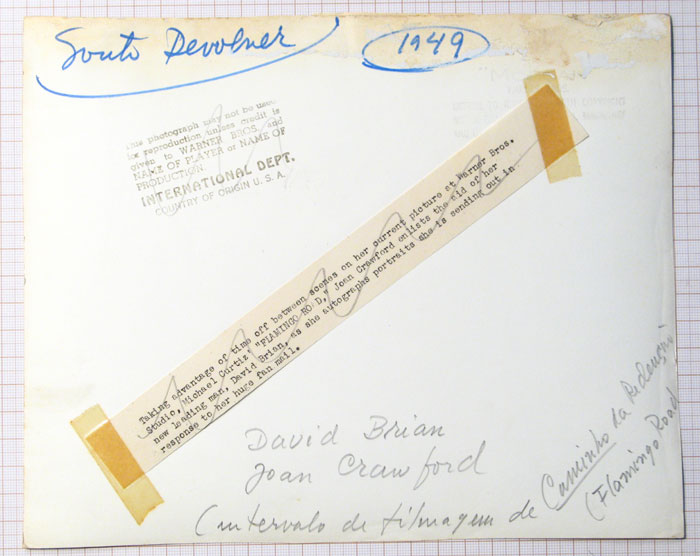 Souto Devolver
1949
This photograph may not be used
for reproduction unless credit is
given to WARNER BROS. and
NAME OF PLAYER or NAME OF
PRODUCTION
INTERNATIONAL DEPT.
COUNTRY OF ORIGIN U. S. A.
Taking advantage of time off between scenes on her current picture at Warner Bros.
Studio, Michael Curtiz' "FLAMINGO ROAD," Joan Crawford enlists the aid of her
new leading man, David Brian, as she autographs portraits she is sending out in
response to her huge fan mail.
David Brian
Joan Crawford
(intervalo de filmagem de Caminho da Redenção
(Flamingo Road